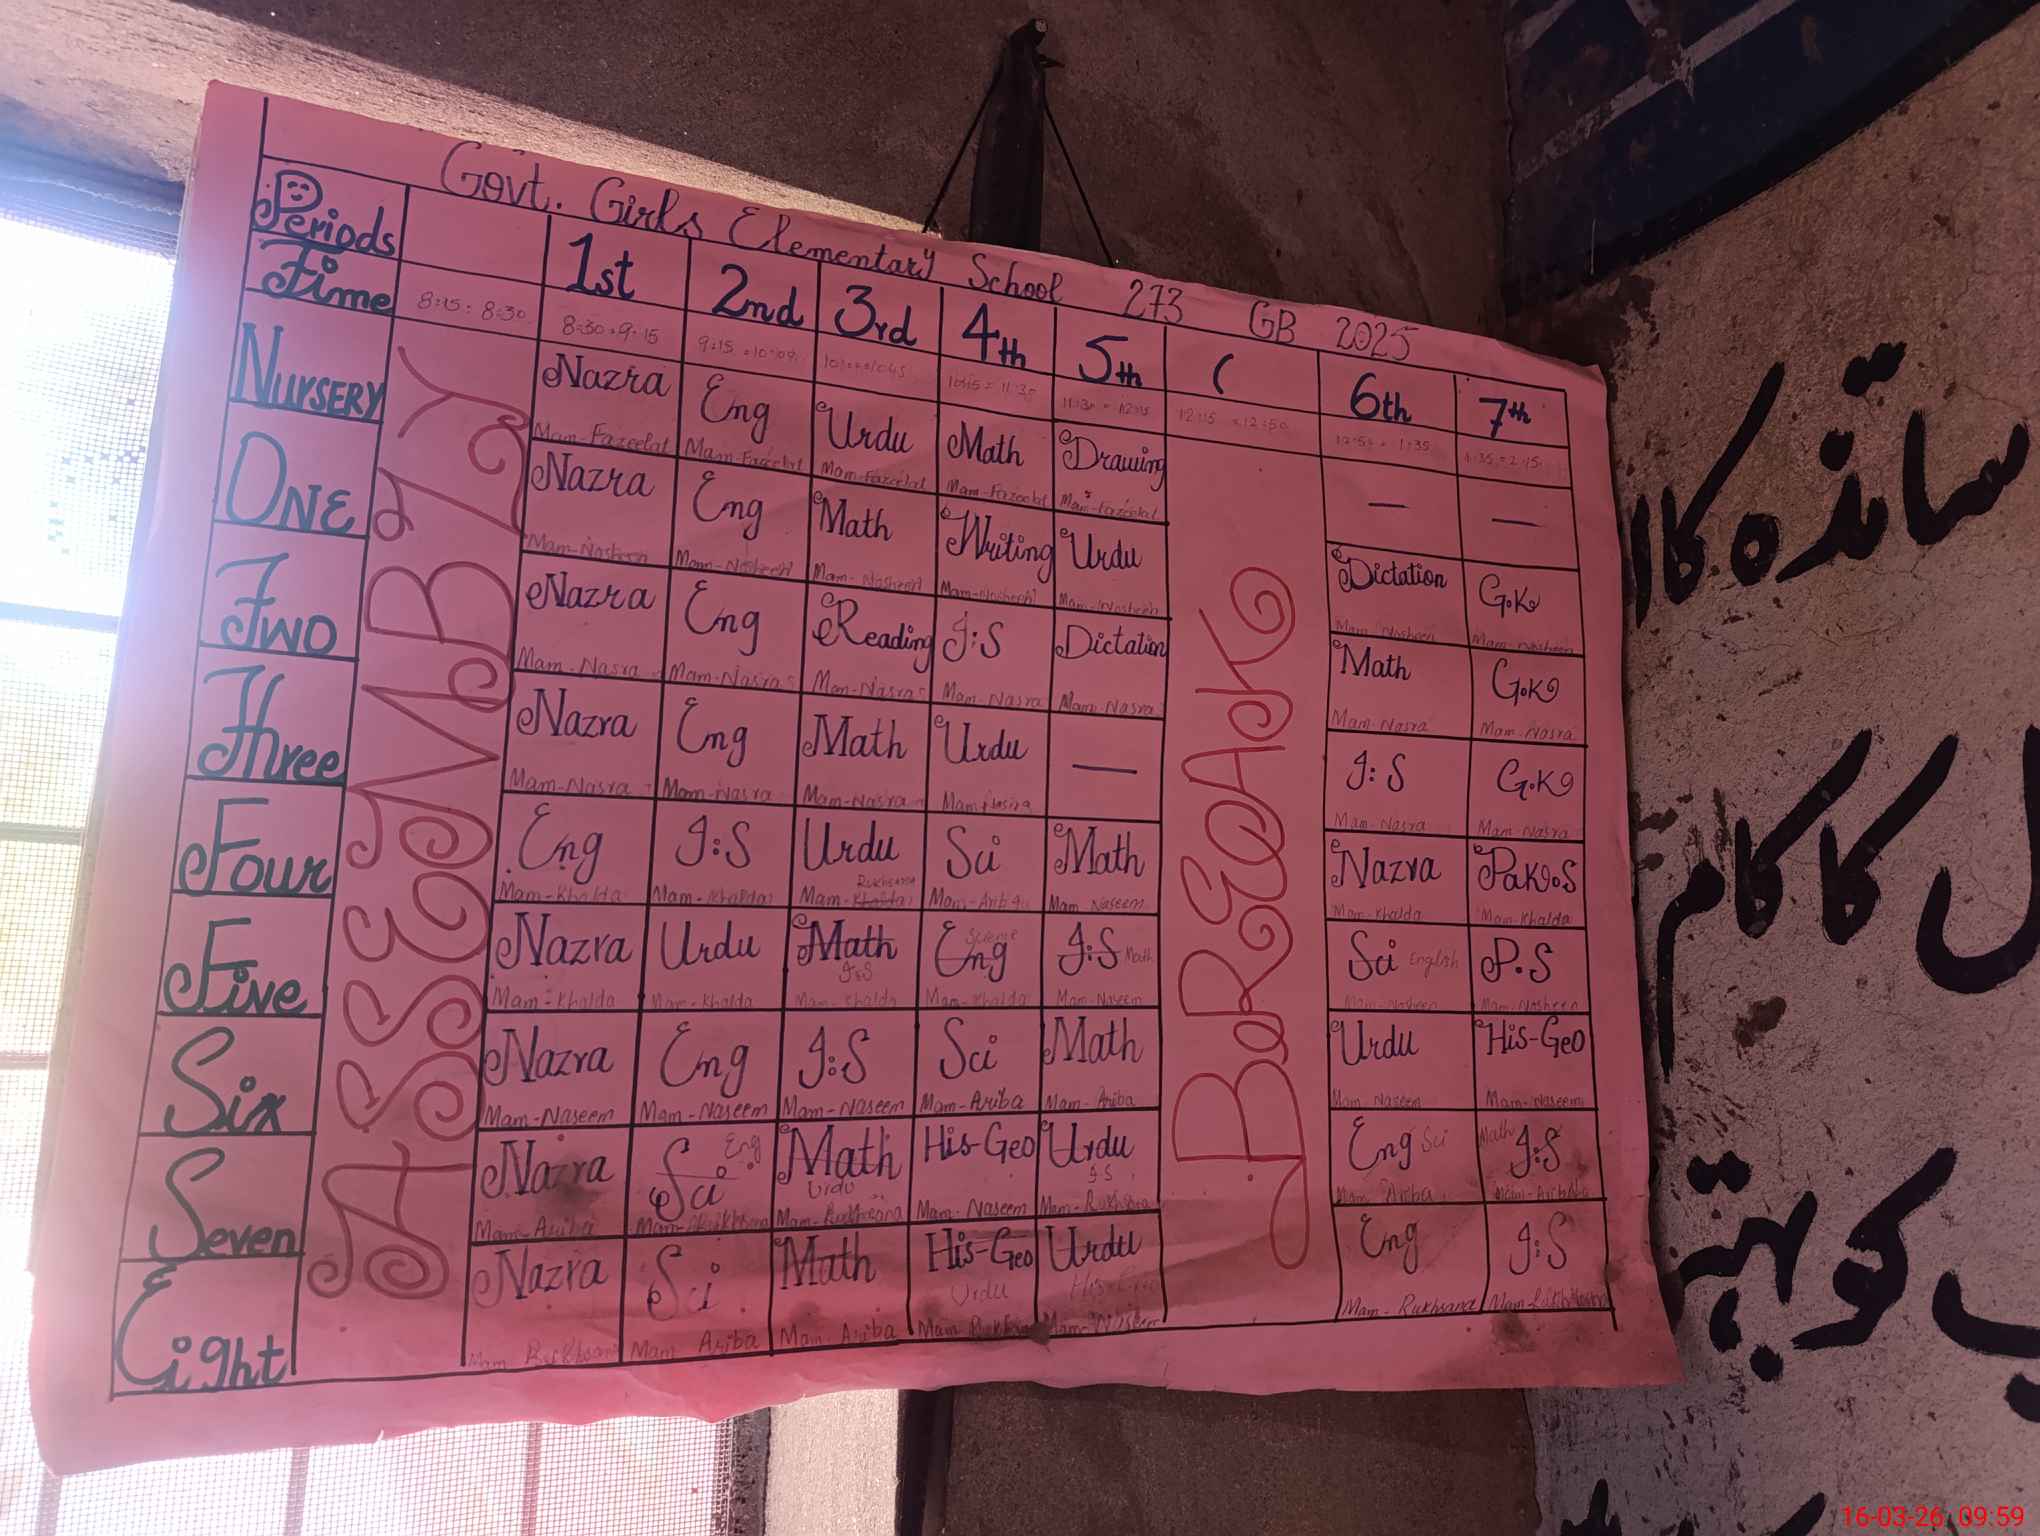 Govt. Girls Elementary School 273 GB 2025
Periods 1st 2nd 3rd 4th 5th ( 6th 7th
Time 8:15 : 8:30 8:30 = 9:15 9:15 = 10:00 10:45 10:45 = 11:30 11:30 = 12:15 12:15 = 12:50 12:50 = 1:35 1:35 = 2:15
ASSEMBLY
BREAK
NURSERY Nazra Eng Urdu Math Drawing — —
Mam-Fazeelat Mam-Fazeelat Mam-Fazeelat Mam-Fazeelat Mam-Fazeelat
ONE Nazra Eng Math Writing Urdu Dictation G.K
Mam-Nosheen Mam-Nosheen Mam-Nosheen Mam-Nosheen Mam-Nosheen Mam-Nosheen Mam-Nosheen
Two Nazra Eng Reading I:S Dictation Math G.K
Mam-Nasra Mam-Nasra Mam-Nasra Mam-Nasra Mam-Nasra Mam-Nasra Mam-Nasra
Three Nazra Eng Math Urdu — I:S G.K
Mam-Nasra Mam-Nasra Mam-Nasra Mam-Nasra Mam-Nasra Mam-Nasra
Four Eng I:S Urdu Sci Math Nazra Pak.S
Rukhsana
Mam-Khalda Mam-Khalda Mam-Khalda Mam-Ariba Mam Naseem Mam-Khalda Mam-Khalda
Five Nazra Urdu Math I:S Eng Science I:S Math Sci English P.S
Mam-Khalda Mam-Khalda Mam-Khalda Mam-Khalda Mam-Naseem Mam-Nosheen Mam-Nosheen
Six Nazra Eng I:S Sci Math Urdu His-Geo
Mam-Naseem Mam-Naseem Mam-Naseem Mam-Ariba Mam-Ariba Mam-Naseem Mam-Naseem
Seven Nazra Sci Eng Math Urdu His-Geo Urdu I.S Eng Sci Math I:S
Mam-Ariba Mam-Rukhsana Mam-Rukhsana Mam-Naseem Mam-Rukhsana Mam Ariba Mam-Ariba
Eight Nazra Sci Math His-Geo Urdu Urdu His-Geo Eng I:S
Mam Rukhsana Mam Ariba Mam-Ariba Mam Mam-Naseem Mam-Rukhsana Mam-
ساتذہ کا
ل کا کام
کو بہتر
16-03-26 09:59